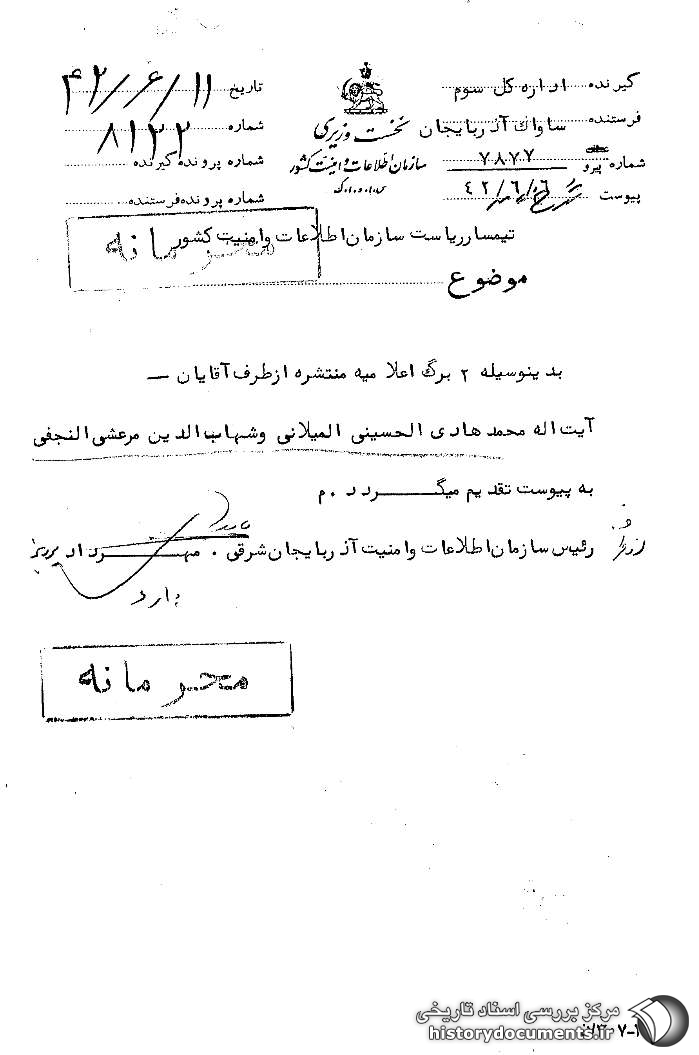 گیرنده اداره کل سوم
فرستنده ساواک آذربایجان
شماره پیرو ۷۸۷۷
پیوست ۴۲/۶/۶
نخست وزیری
سازمان اطلاعات و امنیت کشور
س.ا.و.ا.ک
تاریخ ۴۲/۶/۱۱
شماره ۸۱۳۲
شماره پرونده گیرنده
شماره پرونده فرستنده
تیمسار ریاست سازمان اطلاعات و امنیت کشور
محرمانه
موضوع
بدینوسیله ۲ برگ اعلامیه منتشره از طرف آقایان —
آیت اله محمد هادی الحسینی المیلانی و شهاب الدین مرعشی النجفی
به پیوست تقدیم میگردد . م
رئیس سازمان اطلاعات و امنیت آذربایجان شرقی . مهرداد
محرمانه
مرکز بررسی اسناد تاریخی
historydocuments.ir